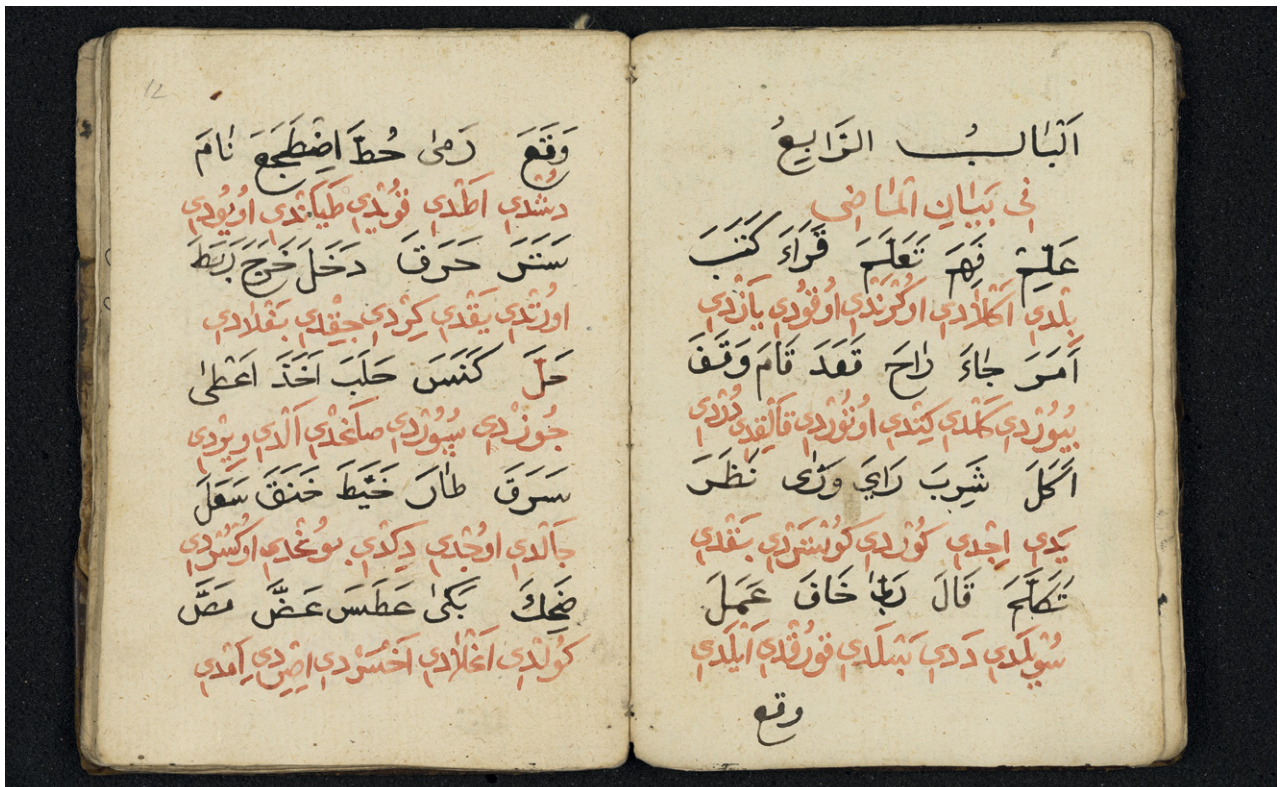 اَلْبَابُ الرَّابِعُ
فِى بَيَانِ الْمَاضِى
عَلِمَ فَهِمَ تَعَلَّمَ قَرَاءَ كَتَبَ
بِلْدِي اَكْلَادِي اوُكْرَنْدِي اوُقُودِي يَازْدِي
اَمَرَ جَاءَ رَاحَ قَعَدَ قَامَ وَقَفَ
بُيُورْدِي كَلْدِي كِتْدِي اوُتُورْدِي قَالْقْدِي دُرْدِي
اَكَلَ شَرِبَ رَايَ وَرّٰى نَظَرَ
يَدِي اِجْدِي كُورْدِي كُوسْتَرْدِي بَقْدِي
تَكَلَّمَ قَالَ رَبَّا خَافَ عَمِلَ
سُويْلَدِي دَدِي بَسْلَدِي قورْقْدِي اَيْلَدِي
وقع
12
وَقَعَ رَمٰى حُطَّ اِضْطَجَعَ نَامَ
دُشْدِي اَطْدِي قُويْدِي طَيَانْدِي اوُيُودِي
سَتَرَ حَرَقَ دَخَلَ خَرَجَ رَبَطَ
اوُرْتْدِي يَقْدِي كِرْدِي جِقْدِي بَغْلَادِي
حَلَّ كَنَسَ حَلَبَ اَخَذَ اَعْطٰى
جُوزْدِي سُپُورْدِي صَاغْدِي اَلْدِي وِيرْدِي
سَرَقَ طَارَ خَيَّطَ خَنَقَ سَعَلَ
جَالْدِي اوُجْدِي دِكْدِي بوُغْدِي اوُكْسُرْدِي
ضَحِكَ بَكٰى عَطَسَ عَضَّ مَصَّ
كُولْدِي اَغْلَادِي اَخْسَرْدِي اِصِرْدِي اَمْدِي